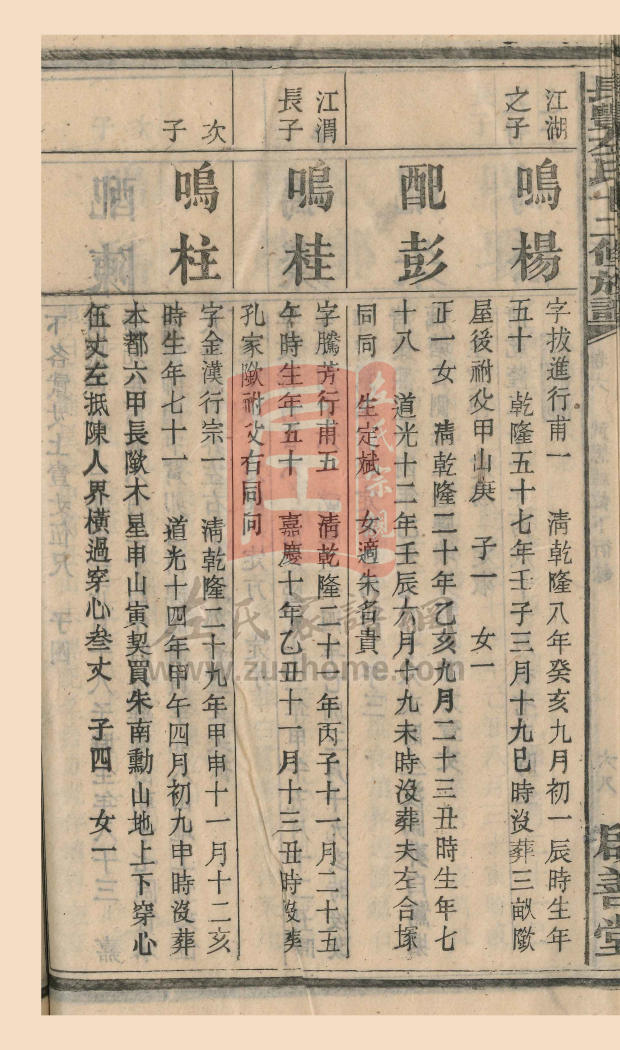 江湖
之子
鳴楊
字拔進行甫一　清乾隆八年癸亥九月初一辰時生年
五十　乾隆五十七年壬子三月十九巳時沒葬三畝墩
屋後祔父甲山庚　子一　女一
配彭
正一女　清乾隆二十年乙亥九月二十三丑時生年七
十八　道光十二年壬辰六月十九未時沒葬夫左合塚
同同　生定斌　女適朱名貴
江渭
長子
鳴桂
字騰芳行甫五　清乾隆二十一年丙子十一月二十五
午時生年五十　嘉慶十年乙丑十一月十三丑時沒葬
孔家墩祔父右同向
次
子
鳴柱
字金漢行宗一　清乾隆二十九年甲申十一月十二亥
時生年七十一　道光十四年甲午四月初九申時沒葬
本都六甲長墩木星申山寅契買朱南勳山地上下穿心
伍丈左抵陳人界橫過穿心叁丈　子四　女一
善堂
左氏家譜網
www.zupuhome.com